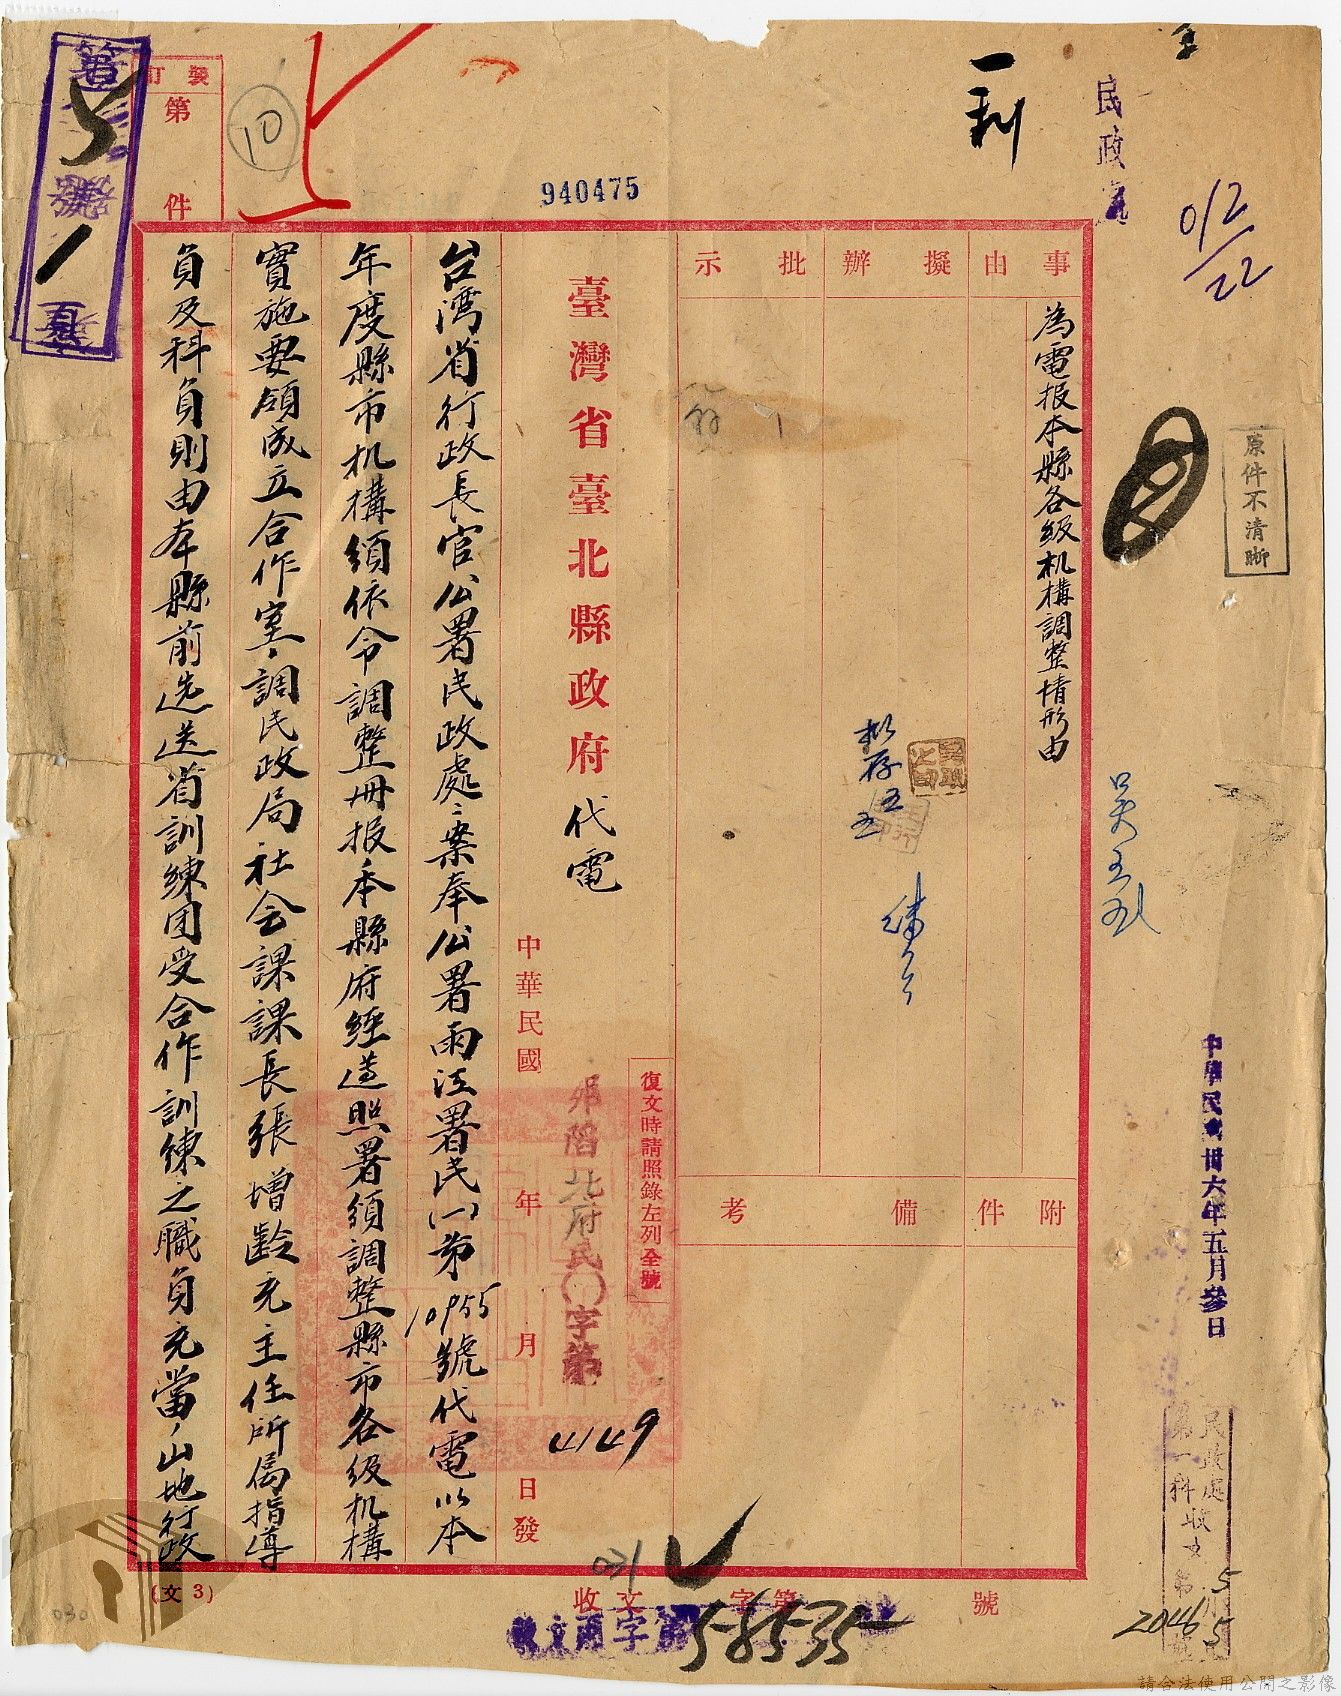 民政處
一科
012/22
原件不清晰
中華民國卅六年五月叁日
民政處
第一科收文
5月5
20146
事由
為電報本縣各級机構調整情形由
擬辦
批示
拟存
附件
備考
940475
臺灣省臺北縣政府代電
中華民國 年 月 日發
復文時請照錄左列全號
北府民 字第
4149
台湾省行政長官公署民政處:案奉公署雨江署民(一)第10955號代電以本
年度縣市机構須依令調整冊报本縣府經遵照署頒調整縣市各级机構
實施要領成立合作室、調民政局社会課課長張增齡充主任所屬指導
員及科員則由本縣前选送省訓練团受合作訓練之職員充當、山地行政
裝訂
第 件
10
5
1
(文3)
收文 字第 號
58535
031
030
請合法使用公開之影像